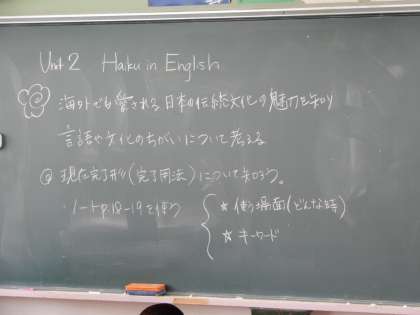 Unit 2 Haiku in English
海外でも愛される日本の伝統文化の魅力を知り
言語や文化のちがいについて考える
◎ 現在完了形(完了用法)について知ろう。
ノートp.18-19を使う
☆ 使う場面(どんな時)
☆ キーワード